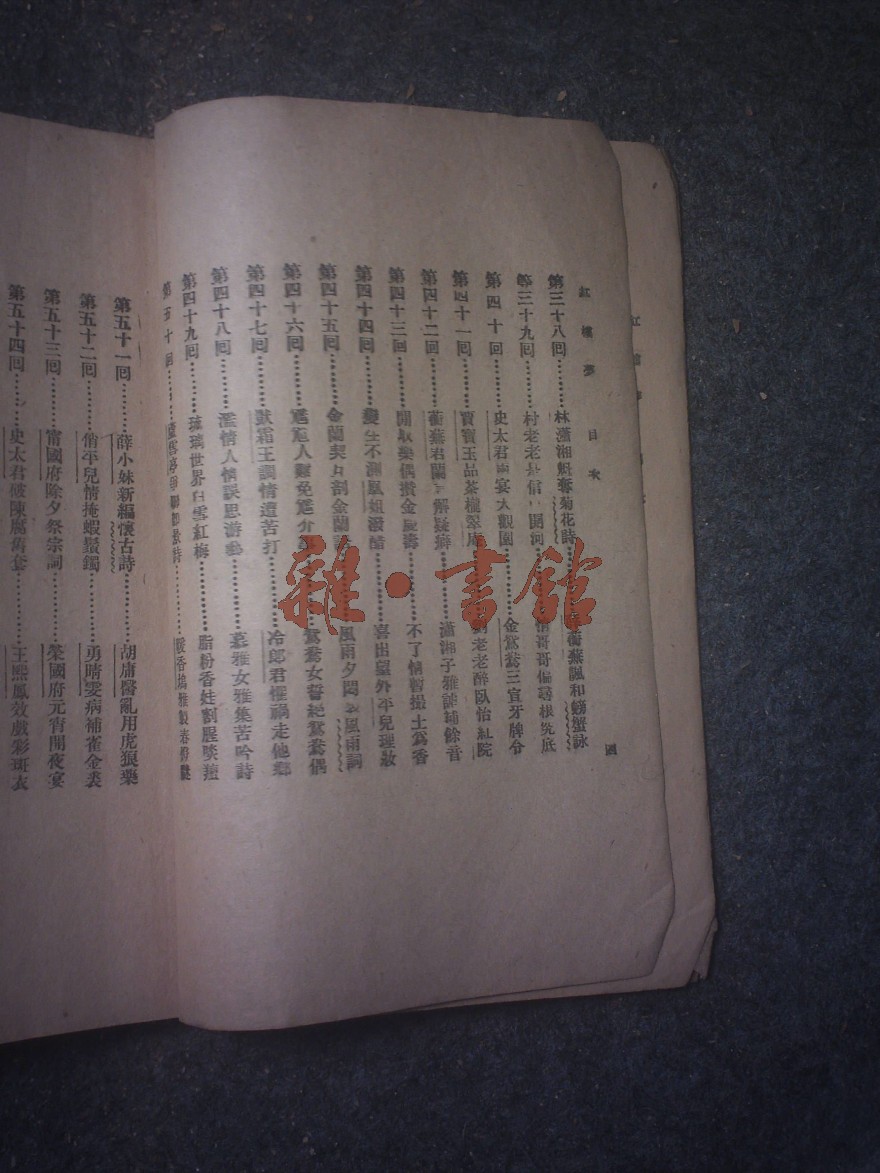 紅樓夢 目次
四
第三十八回………林瀟湘魁奪菊花詩………蘅蕪諷和螃蟹詠
第三十九回………村老老是信口開河………情哥哥偏尋根究底
第四十回………史太君兩宴大觀園………金鴛鴦三宣牙牌令
第四十一回………賈寶玉品茶櫳翠庵………劉老老醉臥怡紅院
第四十二回………蘅蕪君蘭言解疑癖………瀟湘子雅謔補餘音
第四十三回………閒取樂偶攢金慶壽………不了情暫撮土爲香
第四十四回………變生不測鳳姐潑醋………喜出望外平兒理妝
第四十五回………金蘭契互剖金蘭………風雨夕悶製風雨詞
第四十六回………尷尬人難免尷尬………鴛鴦女誓絕鴛鴦偶
第四十七回………獃霸王調情遭苦打………冷郎君懼禍走他鄉
第四十八回………濫情人情誤思游藝………慕雅女雅集苦吟詩
第四十九回………琉璃世界白雪紅梅………脂粉香娃割腥啖羶
第五十回………蘆雪亭爭聯卽景詩………暖香塢雅製春燈謎
第五十一回………薛小妹新編懷古詩………胡庸醫亂用虎狼藥
第五十二回………俏平兒情掩蝦鬚鐲………勇晴雯病補雀金裘
第五十三回………甯國府除夕祭宗祠………榮國府元宵開夜宴
第五十四回………史太君破陳腐舊套………王熙鳳效戲彩斑衣
雜·書館